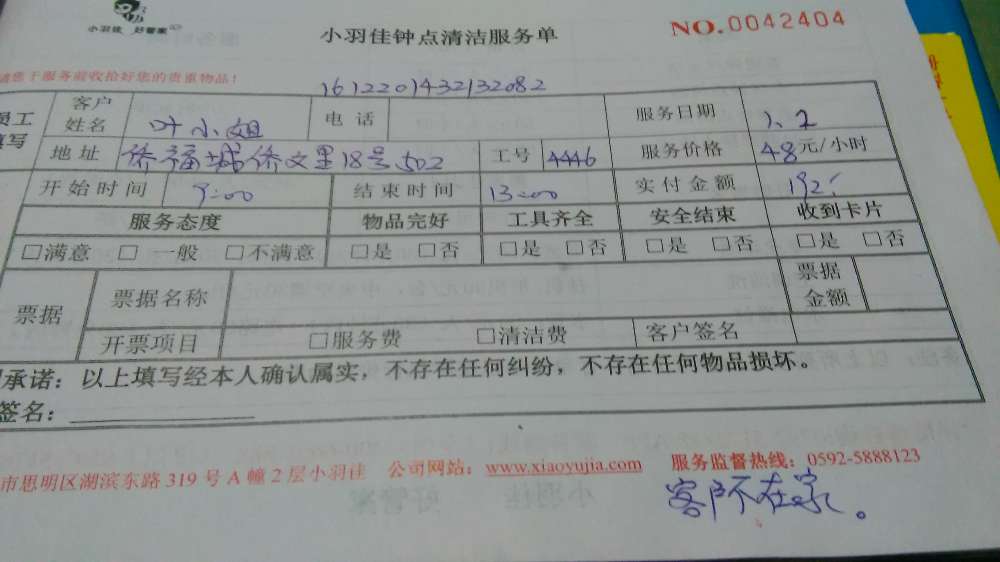 小羽佳 好管家
小羽佳钟点清洁服务单
NO.0042404
请您于服务前收拾好您的贵重物品!
1612201432132082
员工填写
客户姓名 叶小姐 电话 服务日期 1.2
地址 侨福城侨文里18号502 工号 4446 服务价格 48元/小时
开始时间 9:00 结束时间 13:00 实付金额 192.
服务态度 物品完好 工具齐全 安全结束 收到卡片
□满意 □一般 □不满意 □是 □否 □是 □否 □是 □否 □是 □否
票据 票据名称 票据金额
开票项目 □服务费 □清洁费 客户签名
承诺:以上填写经本人确认属实,不存在任何纠纷,不存在任何物品损坏。
签名:
市思明区湖滨东路 319 号 A 幢 2 层小羽佳 公司网站:www.xiaoyujia.com 服务监督热线:0592-5888123
客户不在家。